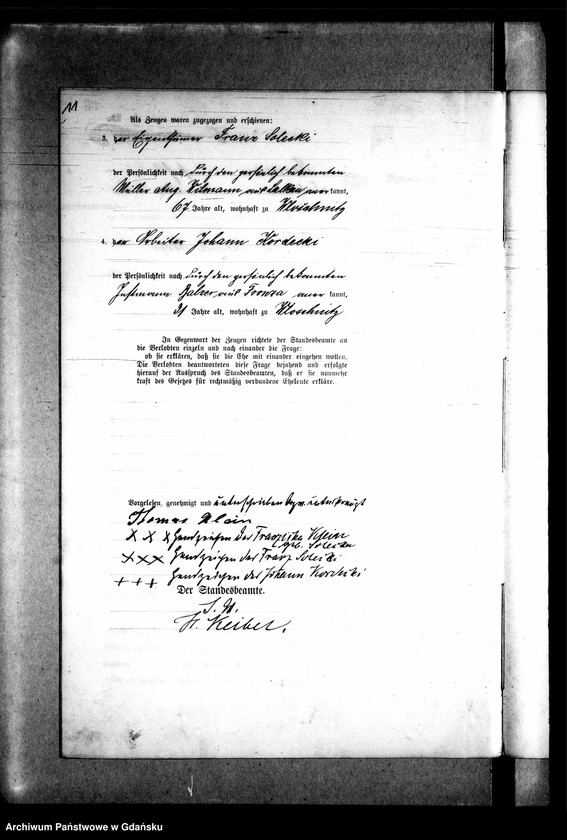 11
Als Zeugen waren zugezogen und erschienen:
3. der Eigenthümer Franz Solecki
der Persönlichkeit nach durch den persönlich bekannten
Müller Aug. aus anerkannt,
67 Jahre alt, wohnhaft zu Wloschnitz
4. der Arbeiter Johann Kordecki
der Persönlichkeit nach durch den persönlich bekannten
Balzer aus Fronza aner kannt,
31 Jahre alt, wohnhaft zu Wloschnitz
In Gegenwart der Zeugen richtete der Standesbeamte an
die Verlobten einzeln und nach einander die Frage:
ob sie erklären, daß sie die Ehe mit einander eingehen wollen.
Die Verlobten beantworteten diese Frage bejahend und erfolgte
hierauf der Ausspruch des Standesbeamten, daß er sie nunmehr
kraft des Gesetzes für rechtmäßig verbundene Eheleute erkläre.
Vorgelesen, genehmigt und unterschrieben bzw. unterkreuzt
Thomas Klein
x x x Handzeichen der Franziska Klein
geb. Solecka
x x x Handzeichen des Franz Solecki
+ + + Handzeichen des Johann Kordecki
Der Standesbeamte.
H. Keibel.
Archiwum Państwowe w Gdańsku